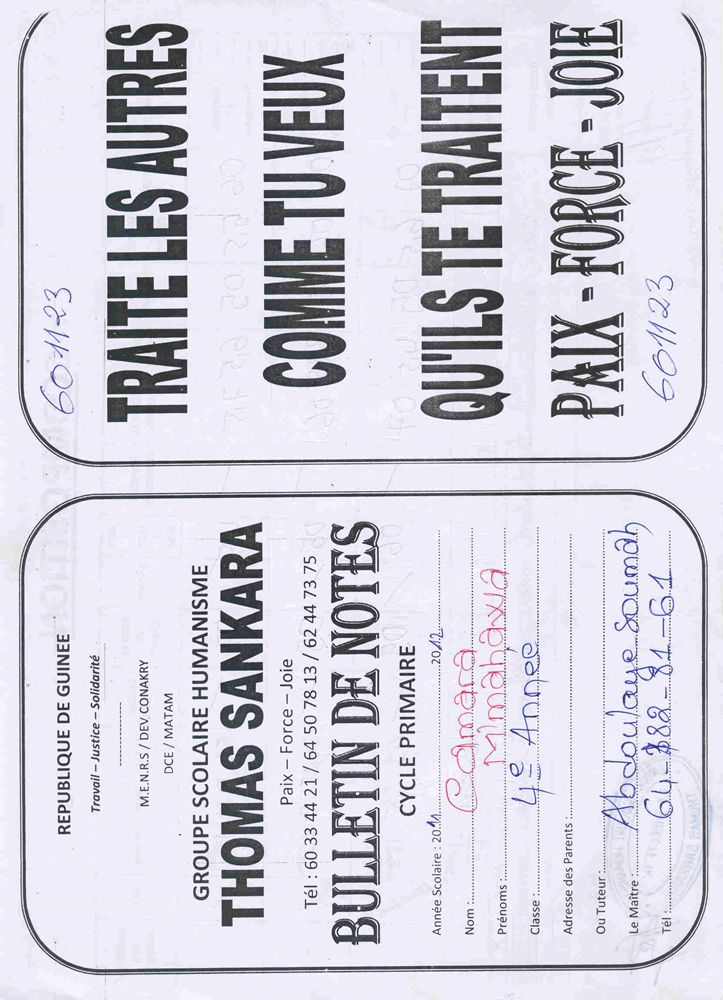 601123
TRAITE LES AUTRES
COMME TU VEUX
QU'ILS TE TRAITENT
PAIX - FORCE - JOIE
601123
REPUBLIQUE DE GUINEE
Travail – Justice – Solidarité
M.E.N.R.S / DEV.CONAKRY
DCE / MATAM
GROUPE SCOLAIRE HUMANISME
THOMAS SANKARA
Paix – Force – Joie
Tél : 60 33 44 21 / 64 50 78 13 / 62 44 73 75
BULLETIN DE NOTES
CYCLE PRIMAIRE
Année Scolaire : 2011 2012
Nom : Camara
Prénoms : M'mahawa
Classe : 4e Année
Adresse des Parents :
Ou Tuteur :
Le Maître : Abdoulaye Soumah
Tél : 64-882-81-61